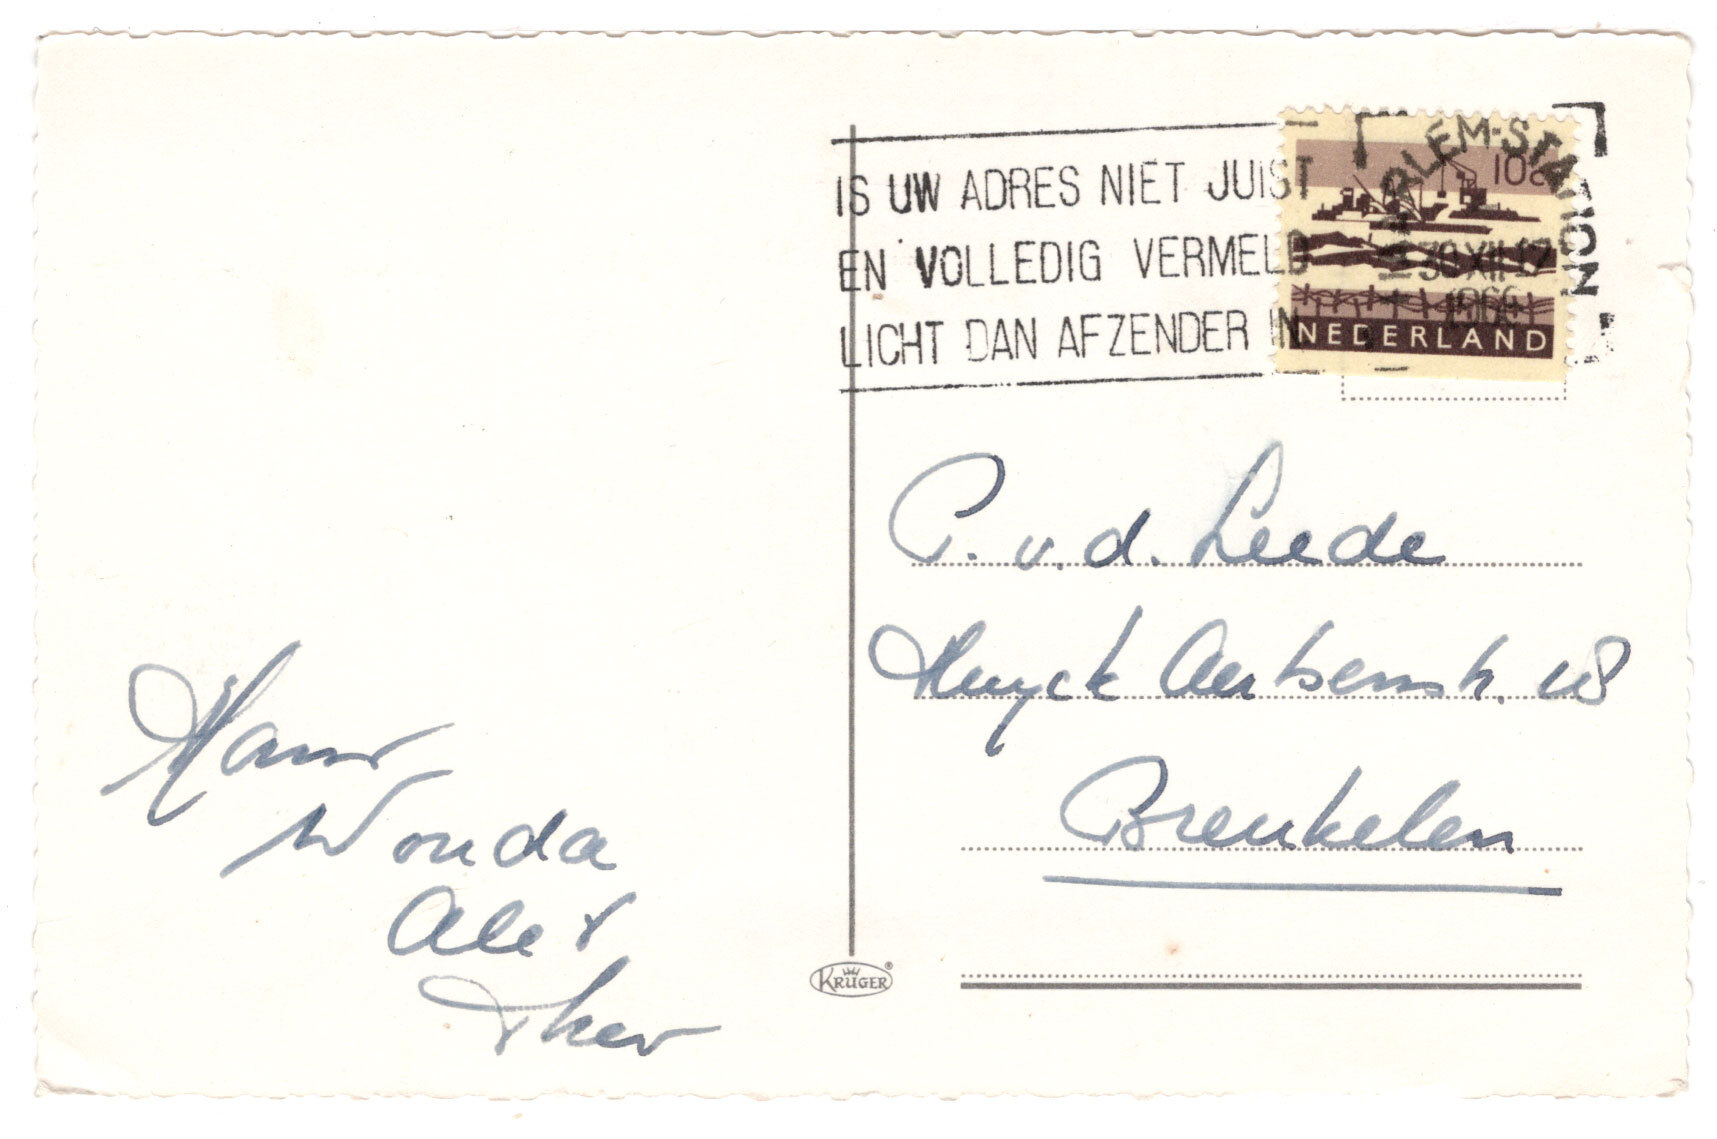 IS UW ADRES NIET JUIST
EN VOLLEDIG VERMELD
LICHT DAN AFZENDER IN
HAARLEM-STATION
30 XII 17
1966
10c
NEDERLAND
P. v. d. Leede
Huyck Aertsenstr. 18
Breukelen
Hans
Wonda
Ale &
Theo
KRÜGER